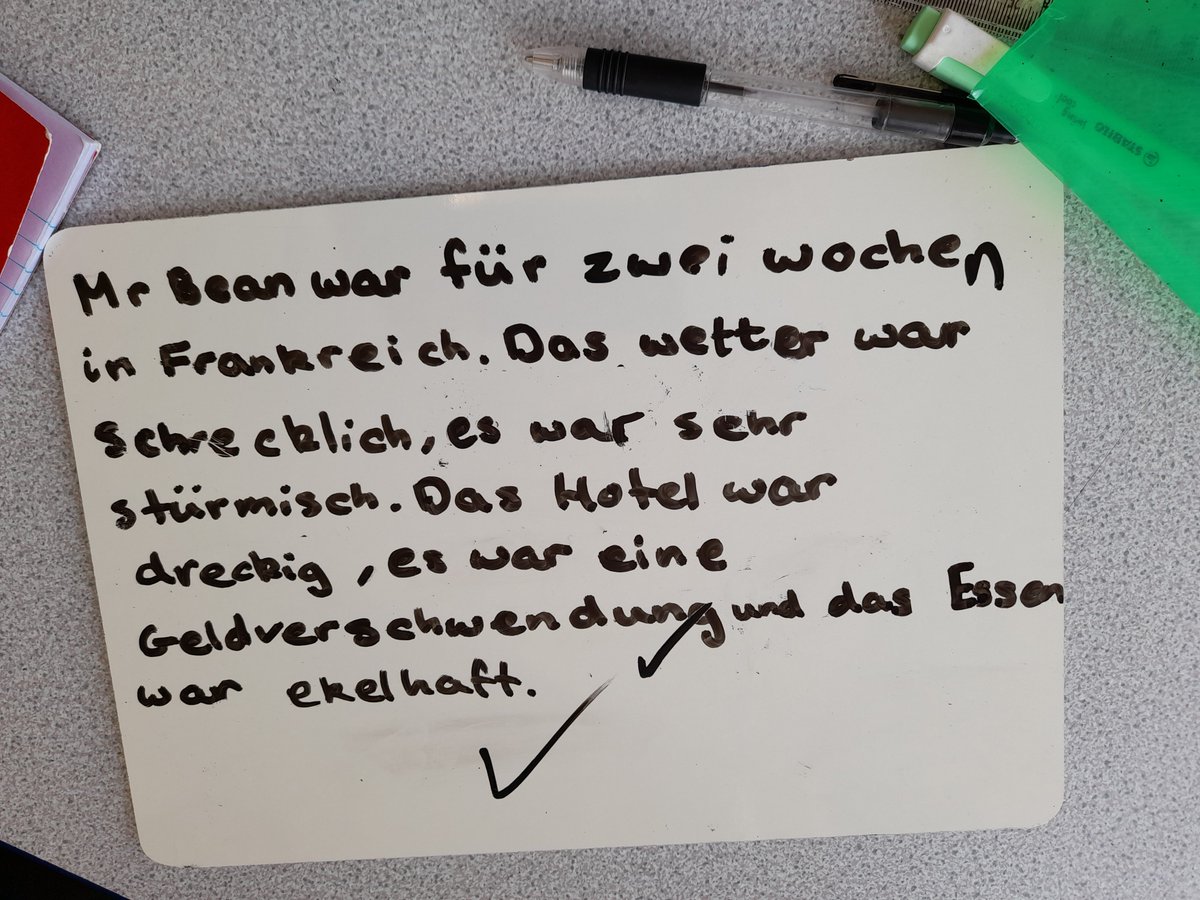 Mr Bean war für zwei wochen
in Frankreich. Das wetter war
schrecklich, es war sehr
stürmisch. Das Hotel war
dreckig, es war eine
Geldverschwendung und das Essen
war ekelhaft.
STABILO